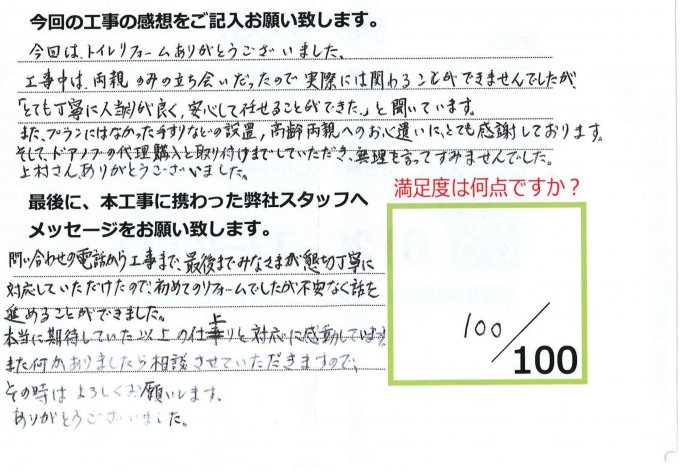 今回の工事の感想をご記入お願い致します。
今回は、トイレリフォームありがとうございました。
工事中は、両親のみの立ち会いだったので実際には関わることができませんでしたが、
「とても丁寧に人当りが良く、安心して任せることができた。」と聞いています。
また、プランにはなかった手すりなどの設置、高齢両親へのお心遣いに、とても感謝しております。
そして、ドアノブの代理購入と取り付けまでしていただき、無理を言ってすみませんでした。
上村さん、ありがとうございました。
満足度は何点ですか？
100/100
最後に、本工事に携わった弊社スタッフへ
メッセージをお願い致します。
問い合わせの電話から工事まで、最後までみなさまが懇切丁寧に
対応していただけたので、初めてのリフォームでしたが不安なく話を
進めることができました。
本当に期待していた以上の仕上りと対応に感動しています。
また何かありましたら相談させていただきますので、
その時はよろしくお願いします。
ありがとうございました。